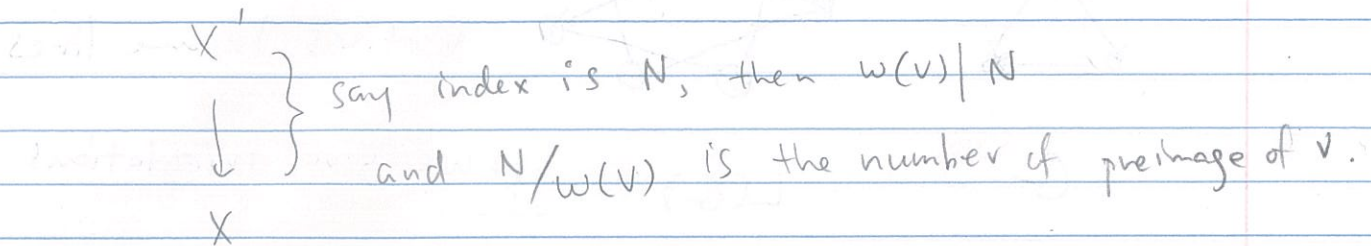 X'
say index is N, then w(v) | N
and N/w(v) is the number of preimage of v.
X